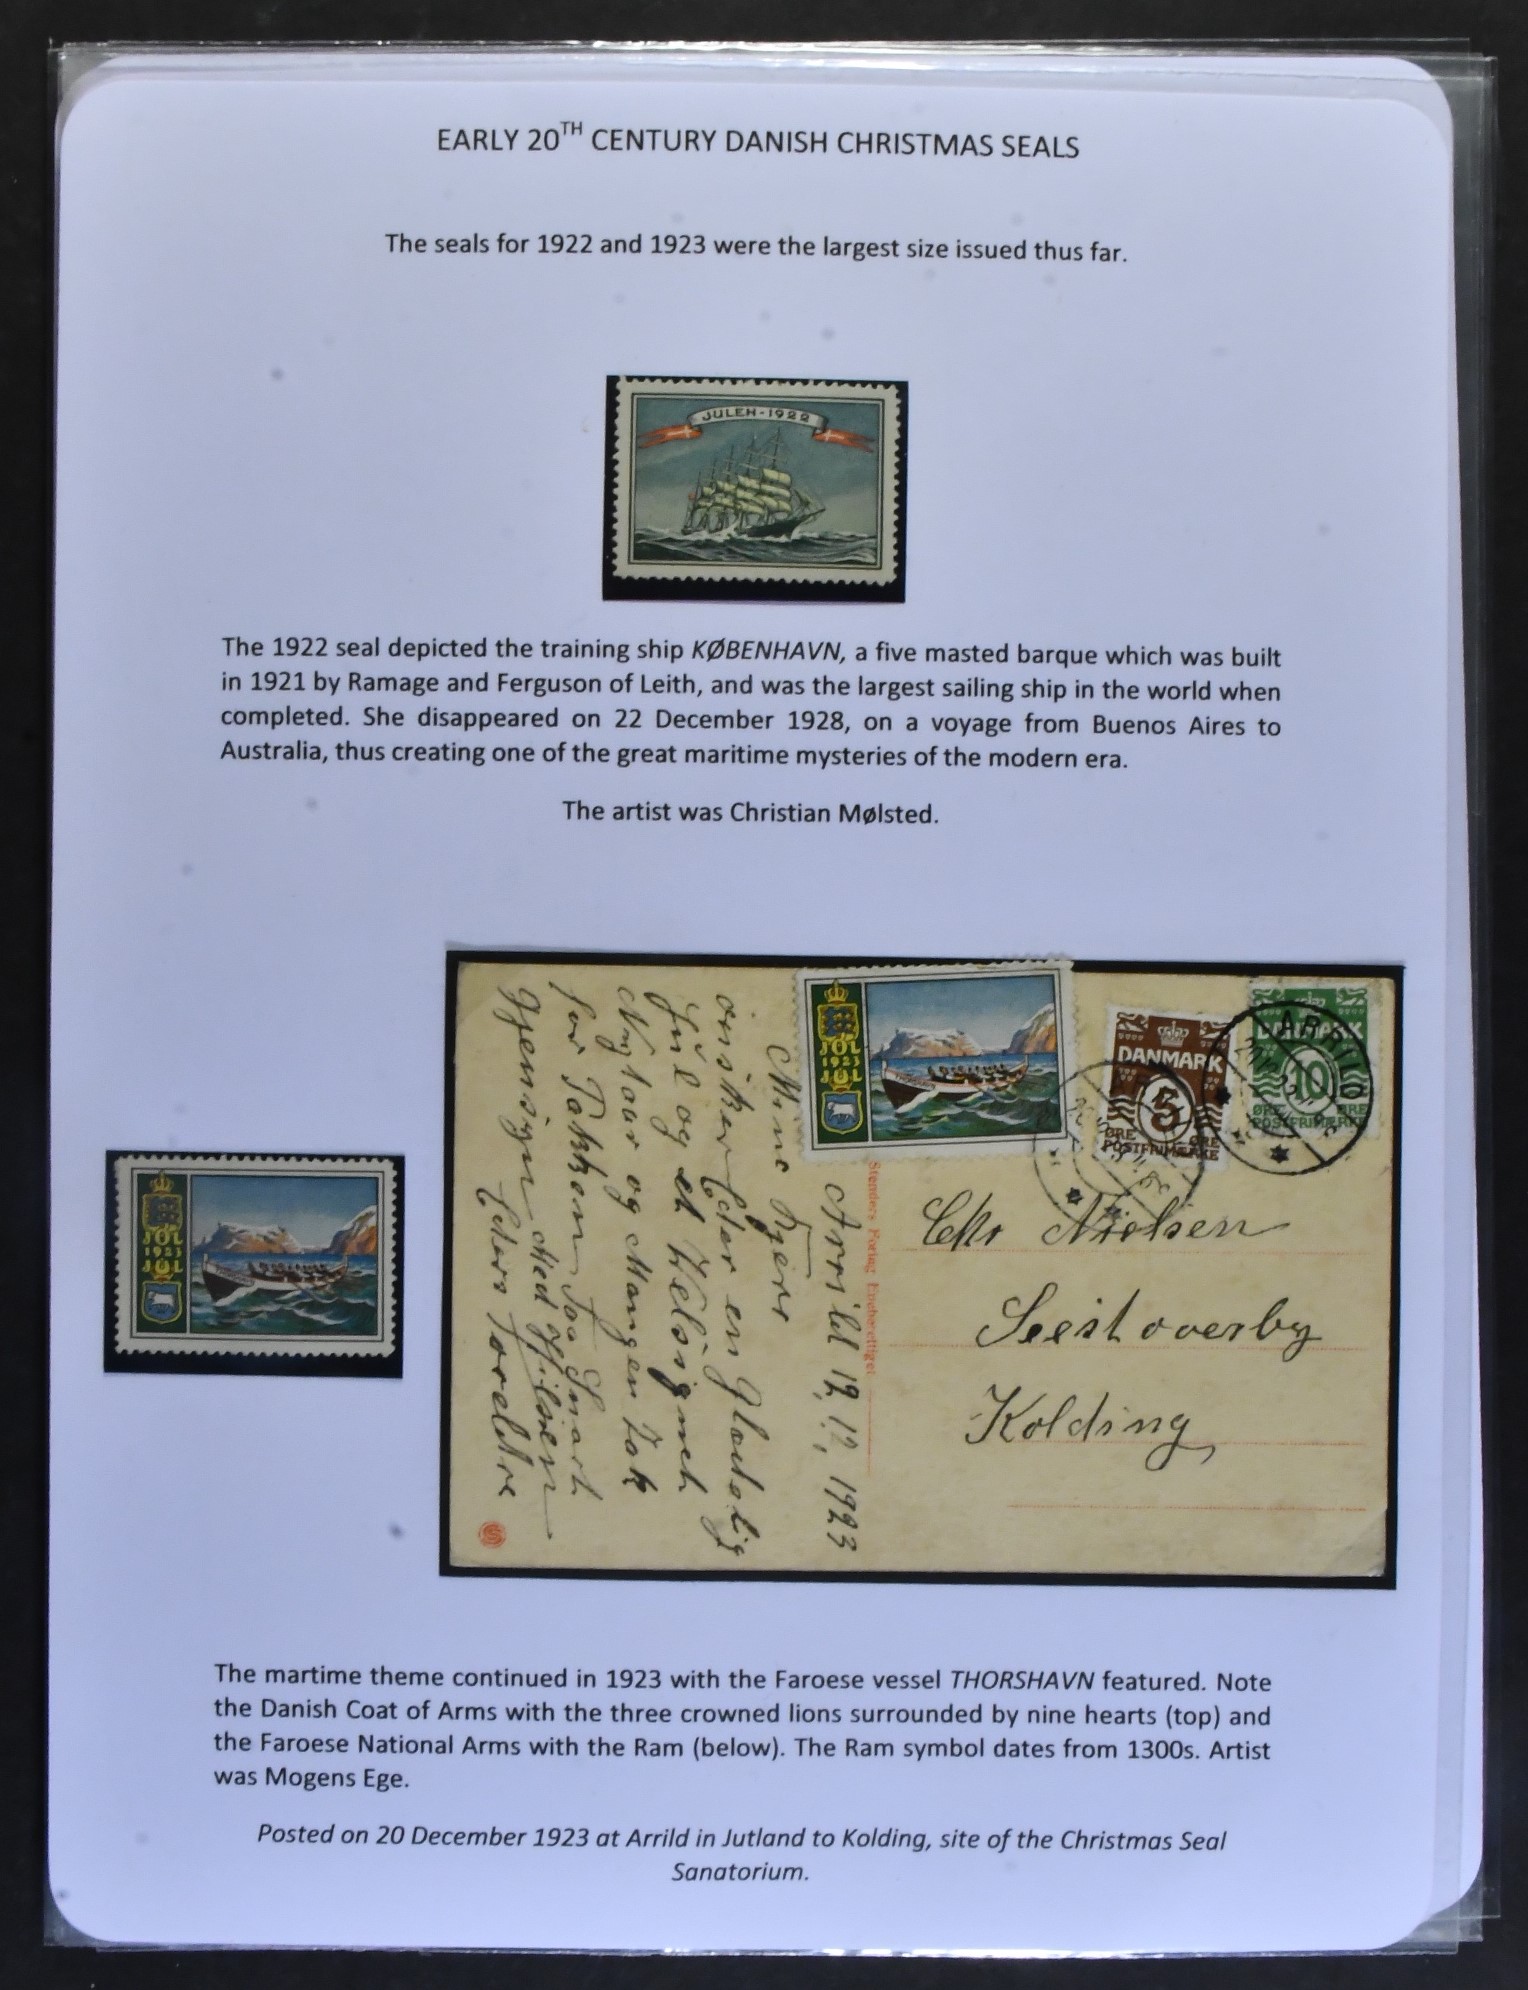 EARLY 20TH CENTURY DANISH CHRISTMAS SEALS
The seals for 1922 and 1923 were the largest size issued thus far.
JULEN-1922
The 1922 seal depicted the training ship KØBENHAVN, a five masted barque which was built
in 1921 by Ramage and Ferguson of Leith, and was the largest sailing ship in the world when
completed. She disappeared on 22 December 1928, on a voyage from Buenos Aires to
Australia, thus creating one of the great maritime mysteries of the modern era.
The artist was Christian Mølsted.
JOL
1923
JUL
JOL
1923
JUL
THORSHAVN
DANMARK
5
ØRE ØRE
POSTFRIMÆRKE
DANMARK
10
ØRE ØRE
POSTFRIMÆRKE
ARRILD
Arrild 19, 12, 1923
Mine Kjere
önsker Eder en Glædelig
Jul og et Velsignet
Nytaar og Mangen Tak
for Pakken
Gjensyn Med
Eders Forældre
Chr Nielsen
Seest overby
Kolding
The martime theme continued in 1923 with the Faroese vessel THORSHAVN featured. Note
the Danish Coat of Arms with the three crowned lions surrounded by nine hearts (top) and
the Faroese National Arms with the Ram (below). The Ram symbol dates from 1300s. Artist
was Mogens Ege.
Posted on 20 December 1923 at Arrild in Jutland to Kolding, site of the Christmas Seal
Sanatorium.